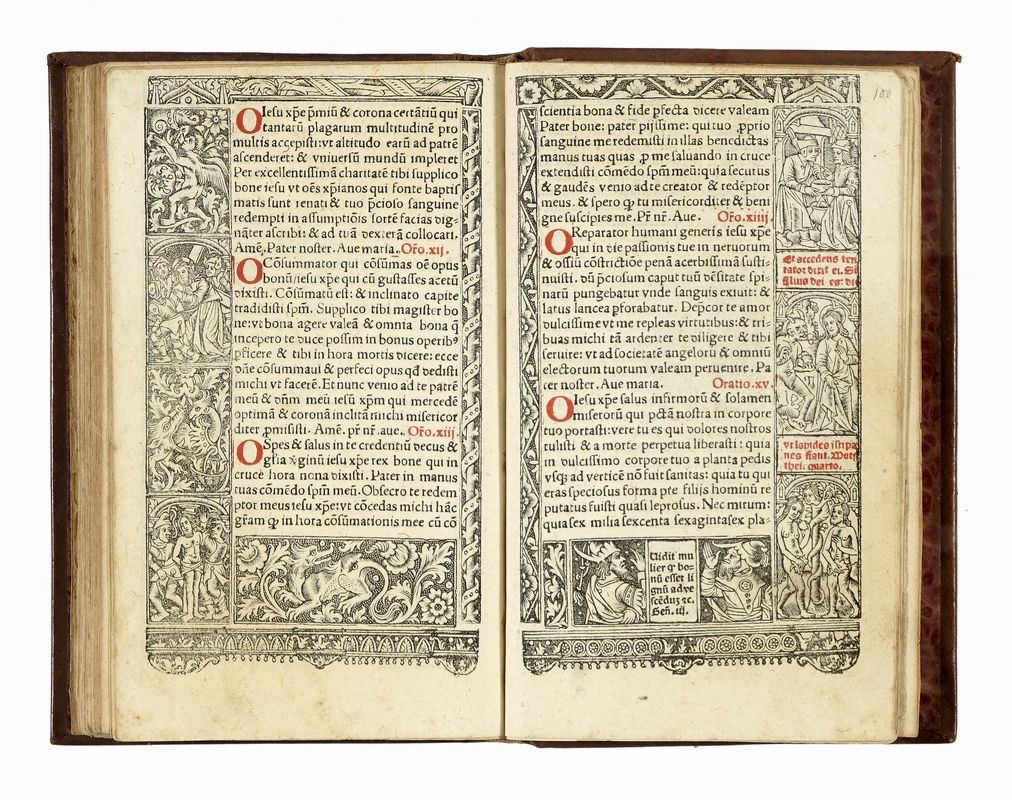 O Iesu xp̄e p̄miū & corona certātiū qui
tantarū plagarum multitudinē pro
multis accepisti: vt altitudo earū ad patrē
ascenderet: & vniuersū mundū impleret
Per excellentissimā charitatē tibi supplico
bone iesu vt oēs xp̄ianos qui fonte baptis
matis sunt renati & tuo p̄cioso sanguine
redempti in assumptiōis sortē facias dig-
nāter ascribi: & ad tuā dexterā collocari.
Amē. Pater noster. Aue maria. Or̄o.xij.
O Cōsummator qui cōsūmas oē opus
bonū/iesu xp̄e qui cū gustasses acetū
dixisti. Cōsūmatū est: & inclinato capite
tradidisti sp̄m. Supplico tibi magister bo
ne: vt bona agere valeā & omnia bona q̄
incepero te duce possim in bonus operibꝰ
p̄ficere & tibi in hora mortis dicere: ecce
dn̄e cōsummaui & perfeci opus qd̄ dedisti
michi vt facerē. Et nunc venio ad te patrē
meū & dn̄m meū iesū xp̄m qui mercedē
optimā & coronā inclitā michi misericor
diter p̄misisti. Amē. pr̄ nr̄. aue. Or̄o.xiij.
O Spes & salus in te credentiū decus &
gl̄ia v̄ginū iesu xp̄e rex bone qui in
cruce hora nona dixisti. Pater in manus
tuas cōmēdo sp̄m meū. Obsecro te redem
ptor meus iesu xp̄e: vt cōcedas michi hāc
gr̄am ꝙ in hora cōsūmationis mee cū cō
100
scientia bona & fide p̄fecta dicere valeam
Pater bone: pater pijssime: qui tuo ꝓprio
sanguine me redemisti in illas benedictas
manus tuas quas ꝓ me saluando in cruce
extendisti cōmēdo sp̄m meū: quia secutus
& gaudēs venio ad te creator & redēptor
meus. & spero ꝙ tu misericorditer & beni
gne suscipies me. Pr̄ nr̄. Aue. Or̄o.xiiij.
O Reparator humani generis iesu xp̄e
qui in die passionis tue in neruorum
& ossiū cōstrictiōe penā acerbissimā susti-
nuisti. dū p̄ciosum caput tuū dēsitate spi-
narū pungebatur vnde sanguis exiuit: &
latus lancea pforabatur. Dep̄cor te amor
dulcissime vt me repleas virtutibus: & tri-
buas michi tā ardenter te diligere & tibi
seruire: vt ad societatē angelorū & omniū
electorum tuorum valeam peruenire. Pa
ter noster. Aue maria. Oratio.xv.
O Iesu xp̄e salus infirmorū & solamen
miserorū qui pctā nostra in corpore
tuo portasti: vere tu es qui dolores nostros
tulisti & a morte perpetua liberasti: quia
in dulcissimo corpore tuo a planta pedis
vsqꝫ ad verticē nō fuit sanitas: quia tu qui
eras speciosus forma p̄e filijs hominū re
putatus fuisti quasi leprosus. Nec mirum:
quia sex milia sexcenta sexagintasex pla-
Et accedens ten
tator dixit ei. Si
filius dei es: di
vt lapides isti pa
nes fiant. Mat
thei. quarto.
Uidit mu
lier ꝙ bo-
nū esset li
gnū ad ve
scēdūꝫ ⁊c.
Gen̄. iij.